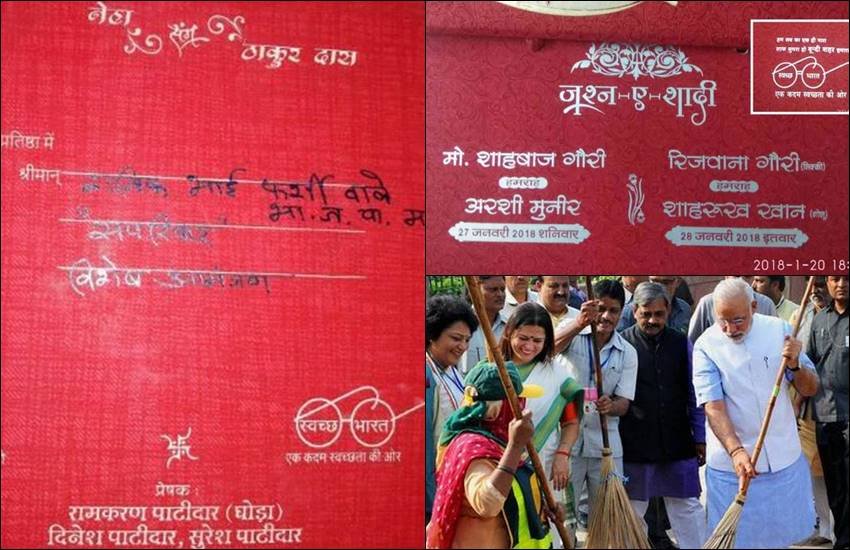 नेहा
संग
ठाकुर दास
प्रतिष्ठा में
श्रीमान्
भाई फर्शी वाले
भा.ज.पा.
सपरिवार
विशेष आमंत्रण
स्वच्छ भारत
एक कदम स्वच्छता की ओर
प्रेषक :
रामकरण पाटीदार (घोड़ा)
दिनेश पाटीदार, सुरेश पाटीदार
जश्न-ए-शादी
मो. शाहबाज गौरी
हमराह
अरशी मुनीर
27 जनवरी 2018 शनिवार
रिजवाना गौरी (विक्की)
हमराह
शाहरूख खान
28 जनवरी 2018 इतवार
हम सब का एक ही नारा
साफ सुथरा हो बून्दी शहर हमारा
स्वच्छ भारत
एक कदम स्वच्छता की ओर
2018-1-20 18: